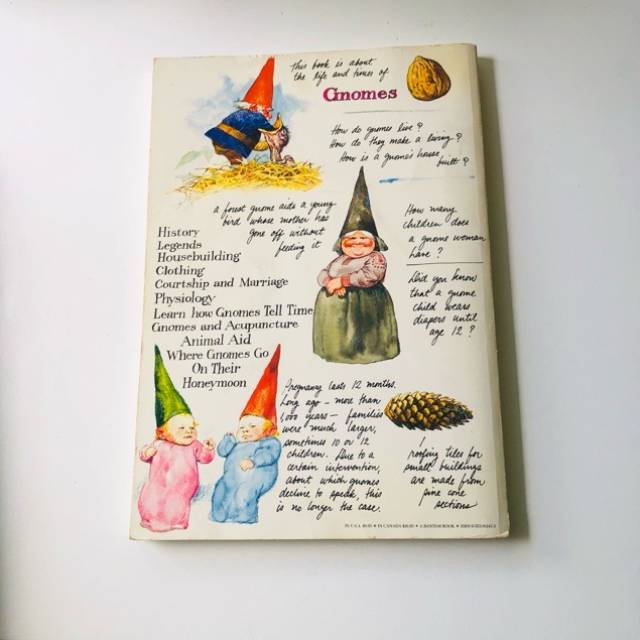 This book is about
the life and times of
Gnomes
How do gnomes live?
How do they make a living?
How is a gnome's house
built?
a forest gnome aids a young
bird whose mother has
gone off without
feeding it
How many
children does
a gnome woman
have?
Did you know
that a gnome
child wears
diapers until
age 12?
History
Legends
Housebuilding
Clothing
Courtship and Marriage
Physiology
Learn how Gnomes Tell Time
Gnomes and Acupuncture
Animal Aid
Where Gnomes Go
On Their
Honeymoon
Pregnancy lasts 12 months.
Long ago – more than
1,000 years – families
were much larger,
sometimes 10 or 12
children. Due to a
certain intervention,
about which gnomes
decline to speak, this
is no longer the case.
roofing tiles for
small buildings
are made from
pine cone
sections
IN U.S.A. • IN CANADA • A BANTAM BOOK • ISBN